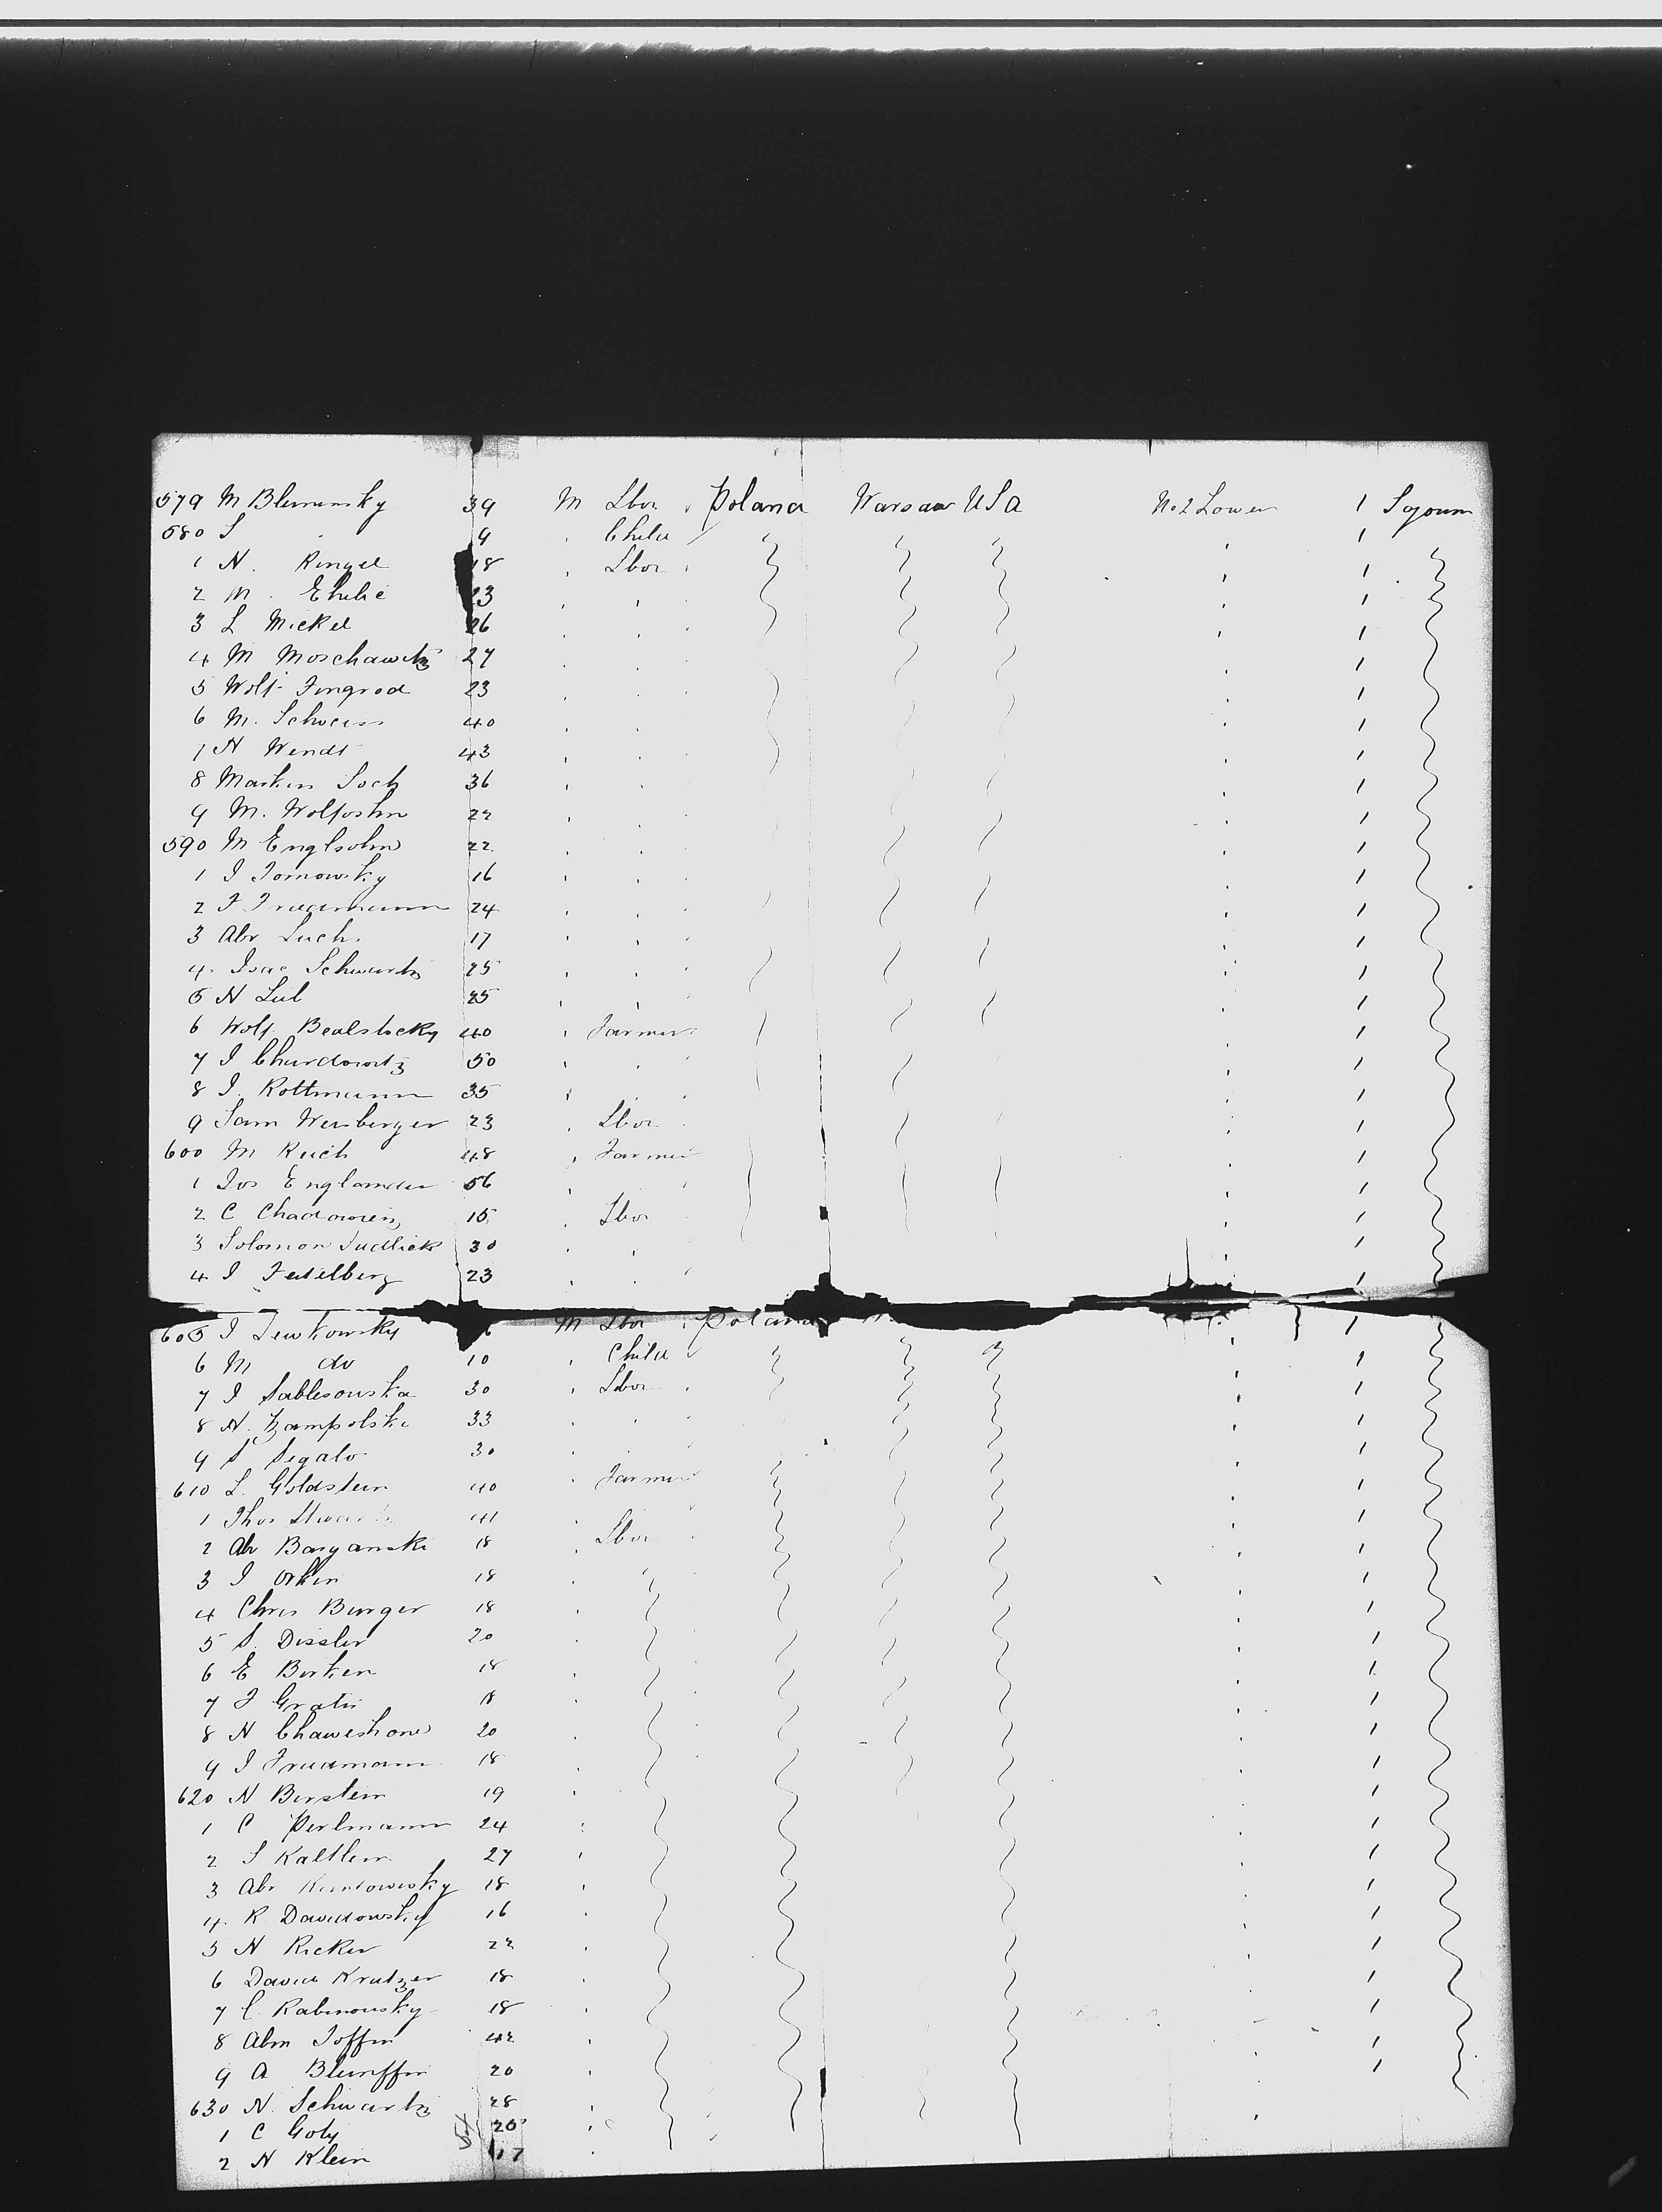 579 M Bluminsky 39 M Lbor Poland Warsaw USA No 2 Lower 1 Sojourn
580 S 9 Child 1
1 N. Ringel 18 Lbor 1
2 M. 23 1
3 L Mickel 26 1
4 M Moschawitz 27 1
5 Wolf Fingrod 23 1
6 M. Schweiss 40 1
7 N Wendt 43 1
8 Markus Soch 36 1
9 M. Wolfsohn 22 1
590 M Englsohn 22 1
1 I Tomowsky 16 1
2 F Friedmann 24 1
3 Abr Luch 17 1
4 Isac Schwartz 25 1
5 N Lub 25 1
6 Wolf Bealstocky 40 Farmer 1
7 I Churdowitz 50 1
8 I. Rottmann 35 1
9 Sam Weinberger 23 Lbor 1
600 M Reich 48 Farmer 1
1 Jos Englander 56 1
2 C 15 Lbor 1
3 Solomon Judlick 30 1
4 I Feitelberg 23 1
605 I Lewkowsky M Lbor Poland 1
6 M do 10 Child 1
7 I Sablesouska 30 Lbor 1
8 N. Zampolski 33 1
9 S Segalo 30 1
610 L. Goldstein 40 Farmer 1
1 Thos 41 1
2 Ab Baryanski 18 Lbor 1
3 I Orkin 18 1
4 Chris Burger 18 1
5 S. Dissler 20 1
6 E Birken 18 1
7 I Gratis 18 1
8 N Chaweshone 20 1
9 I Friedmann 18 1
620 N Birstein 19 1
1 C Perlmann 24 1
2 S Kaltlem 27 1
3 Abr 18 1
4 R Davidowsky 16 1
5 N Ricker 22 1
6 David Kratzer 18 1
7 C Rabinousky 18 1
8 Abm Joffin 42 1
9 A Blumffin 20 1
630 N. Schwartz 28
1 C Goty 20
2 N Klein 17